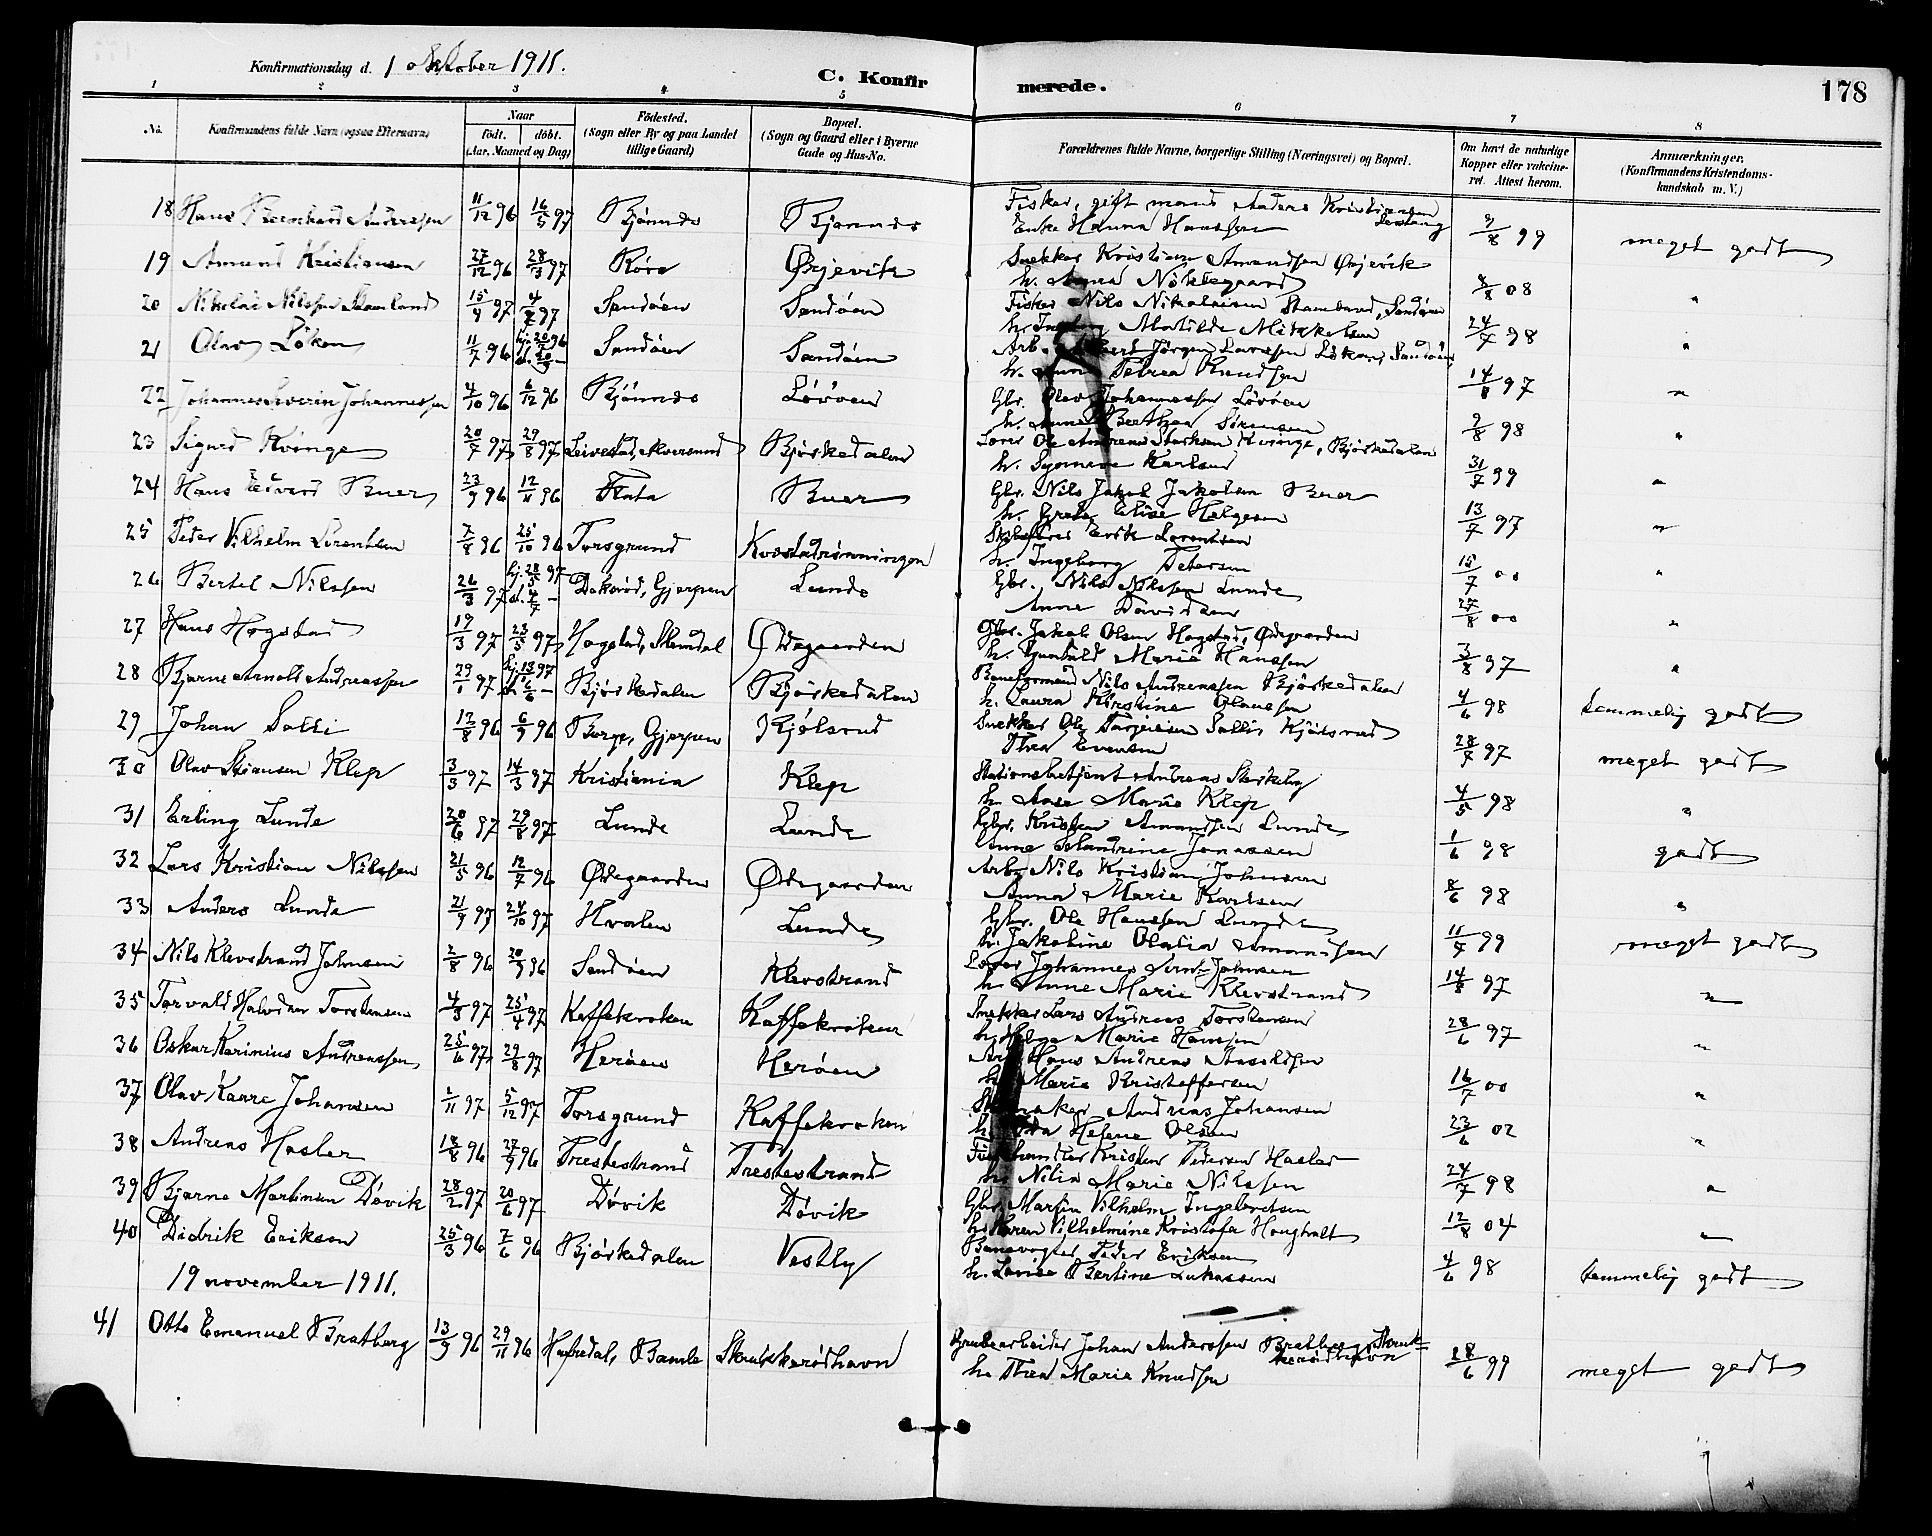 Konfirmationsdag d. 1 oktober 1911.
C. Konfirmerede.
178
1 2 3 4 5 6 7 8
No. Konfirmandens fulde Navn (ogsaa Efternavn) Naar födt. döbt. (Aar, Maaned og Dag) Födested. (Sogn eller By og paa Landet tillige Gaard) Bopæl. (Sogn og Gaard eller i Byerne Gade og Hus-No. Forældrenes fulde Navne, borgerlige Stilling (Næringsvei) og Bopæl. Om havt de naturlige Kopper eller vaccineret. Attest herom. Anmærkninger. (Konfirmandens Kristendomskundskab m. V.)
18 Hans Bernhard Anderssen 11/12 96 16/5 97 Bjönnes Bjönnes Fisker, gift mand Anders Kristiansen
Enke Hanna Hanssen 2/8 99 meget godt
19 Amund Kristiansen 27/12 96 28/3 97 Röra Ørjevik Snekker Kristian Amundsen Ørjevik
h. Anna Nöklegaard 4/8 08 "
20 Nikolai Nilssen Stamland 15/4 97 Sandöen Sandöen Fisker Nils Nikolaisen Stamland, Sandöen
h. Ingeborg Matilde Mikkelsen 24/7 98 "
21 Olav Löken 11/7 96 Sandöen Sandöen Arb. Jörgen Larssen Löken, Sandöen
h. Anne Petrea Knudsen 14/8 97 "
22 Johannes Severin Johannessen 4/10 96 6/12 96 Bjönnes Lövöen Gbr. Olav Johannessen Lövöen
h. Anne Berthea Sörensen 2/8 98 "
23 Sigurd Kvinge 20/7 97 29/8 97 Leivestad, Alversund Björkedalen Lærer Ole Andreas Kvinge, Björkedalen
h. Synneve Karlsen 31/7 99 "
24 Hans Edvard Buer 23/9 96 12/11 96 Flata Buer Gbr. Nils Jakob Jakobsen Buer
h. Grete Elise Helgesen 13/7 97 "
25 Peder Vilhelm Lorentsen 7/8 96 25/10 96 Porsgrund Skibsförer Erik Lorentsen
h. Ingeborg Petersen 15/7 00 "
26 Bertel Nilssen 26/3 97 hj. 28/5 97 Gjerpen Lunde Gbr. Nils Nilssen Lunde
Anne Davidsen 27/8 00 "
27 Hans Hogstad 19/3 97 23/5 97 Hogstad, Slemdal Ødegaarden Gbr. Jakob Olsen Hogstad, Ødegaarden
h. Gunhild Marie Hanssen 3/8 97 "
28 Bjarne Arnold Andreassen 29/1 97 Björkedalen Björkedalen Baneformand Nils Andreassen Björkedalen
h. Laura Kirstine Olaussen 4/6 98 temmelig godt
29 Johan Solli 12/8 96 6/9 96 Borge, Gjerpen Kjölsrud Snekker Ole Torjeisen Solli, Kjölsrud
Thea Evensen 28/7 97 meget godt
30 Olav Steansen Klep 3/3 97 14/3 97 Kristiania Klep Stationsbetjent Andreas
h. Aase Marie Klep 4/5 98 "
31 Erling Lunde 20/6 97 29/8 97 Lunde Lunde Gbr. Kristen Amundsen Lunde
Anne Jonassen 1/6 98 godt
32 Lars Kristian Nilssen 21/5 96 12/7 96 Ødegaarden Ødegaarden Arb. Nils Kristian Johnsen
Anna Marie Karlsen 8/6 98 "
33 Anders Lunde 21/9 97 24/10 97 Hvalen Lunde Gbr. Ole Hanssen Lunde
h. Jakobine Olalia Amundsen 11/7 99 meget godt
34 Nils Klevstrand Johnsen 2/8 96 20/9 96 Sandöen Klevstrand Johannes Johnsen
h. Anne Marie Klevstrand 14/8 97 "
35 Torvald Halvdan Torstensen 4/3 97 25/4 97 Kaffekroken Kaffekroken Snekker Lars Andreas Torstensen
h. Helga Marie Hanssen 28/6 97 "
36 Oskar Karinius Andreassen 25/6 97 29/8 97 Heröen Heröen Arb. Hans Andreas
h. Marie Kristoffersen 16/7 00 "
37 Olav Kaare Johansen 2/11 97 5/12 97 Porsgrund Kaffekroken Andreas Johansen
h. Helene Olsen 23/6 02 "
38 Andreas Hasler 18/8 96 27/9 96 Prestestrand Prestestrand Kristen Pedersen Hasler
h. Nilia Marie Nilssen 24/7 98 "
39 Bjarne Martinsen Dövik 28/2 97 20/6 97 Dövik Dövik Gbr. Martin Vilhelm Ingebretsen
h. Karen Vilhelmine Kristofa Hougholt 12/8 04 "
40 Didrik Eriksen 25/3 96 7/6 96 Björkedalen Vestby Banevogter Peder Eriksen
h. Lovise Bertine Lukassen 4/6 98 temmelig godt
19 november 1911.
41 Otto Emanuel Bratberg 13/9 96 29/11 96 Bamle Skrukkerödhavn Grubearbeider Johan Anderssen Bratberg, Skrukkerödhavn
h. Thea Marie Knudsen 28/6 99 meget godt